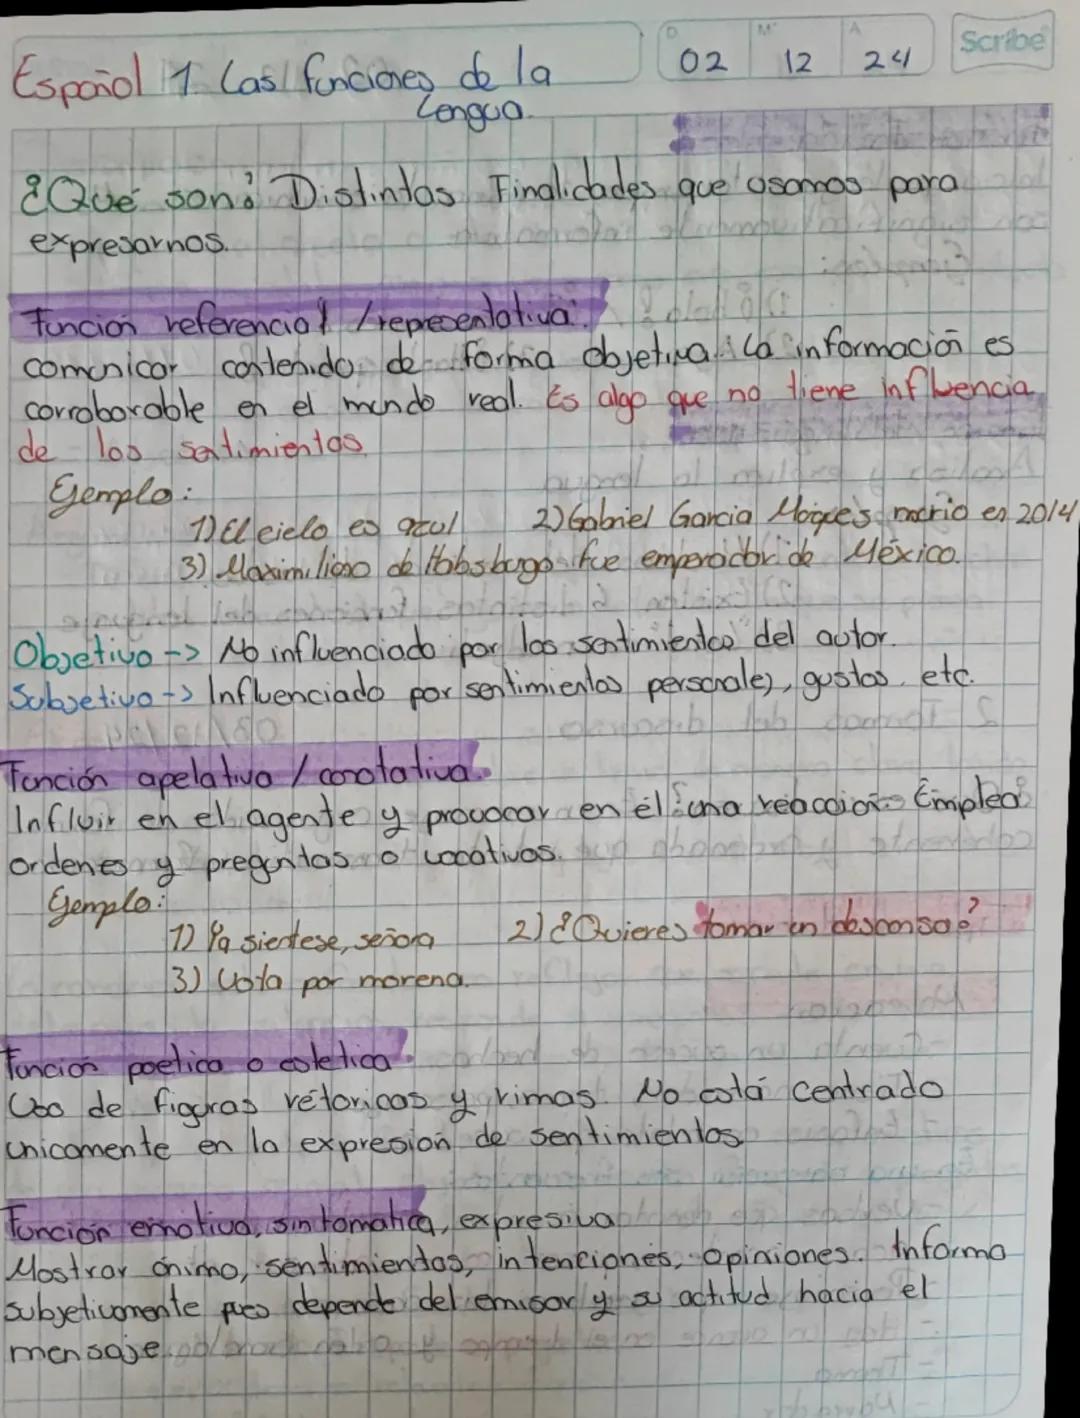 D M A
02 12 24 Scribe
Español 1. Las funciones de la
Lengua.
¿Qué son? Distintas Finalidades que usamos para
expresarnos.
Función referencial / representativa:
comunicar contenido de forma objetiva. La información es
corroborable en el mundo real. Es algo que no tiene influencia
de los sentimientos.
Ejemplo:
1) El cielo es azul 2) Gabriel Garcia murio en 2014
3) Maximiliano de Habsburgo fue emperador de México.
Objetivo -> No influenciado por los sentimientos del autor.
Subjetivo -> Influenciado por sentimientos personales, gustos, etc.
Función apelativa / conotativa.
Influir en el agente y provocar en él una reacción. Emplea
ordenes y preguntas o vocativos.
Ejemplo:
1) Ya sientese, señora 2) ¿Quieres tomar un descanso?
3) Vota por morena.
Función poetica o estetica.
Uso de figuras rétoricas y rimas. No está centrado
unicamente en la expresión de sentimientos.
Función emotiva, sintomatica, expresiva
Mostrar ánimo, sentimientos, intenciones, opiniones. Informa
subjetivamente pues depende del emisor y su actitud hacia el
mensaje.